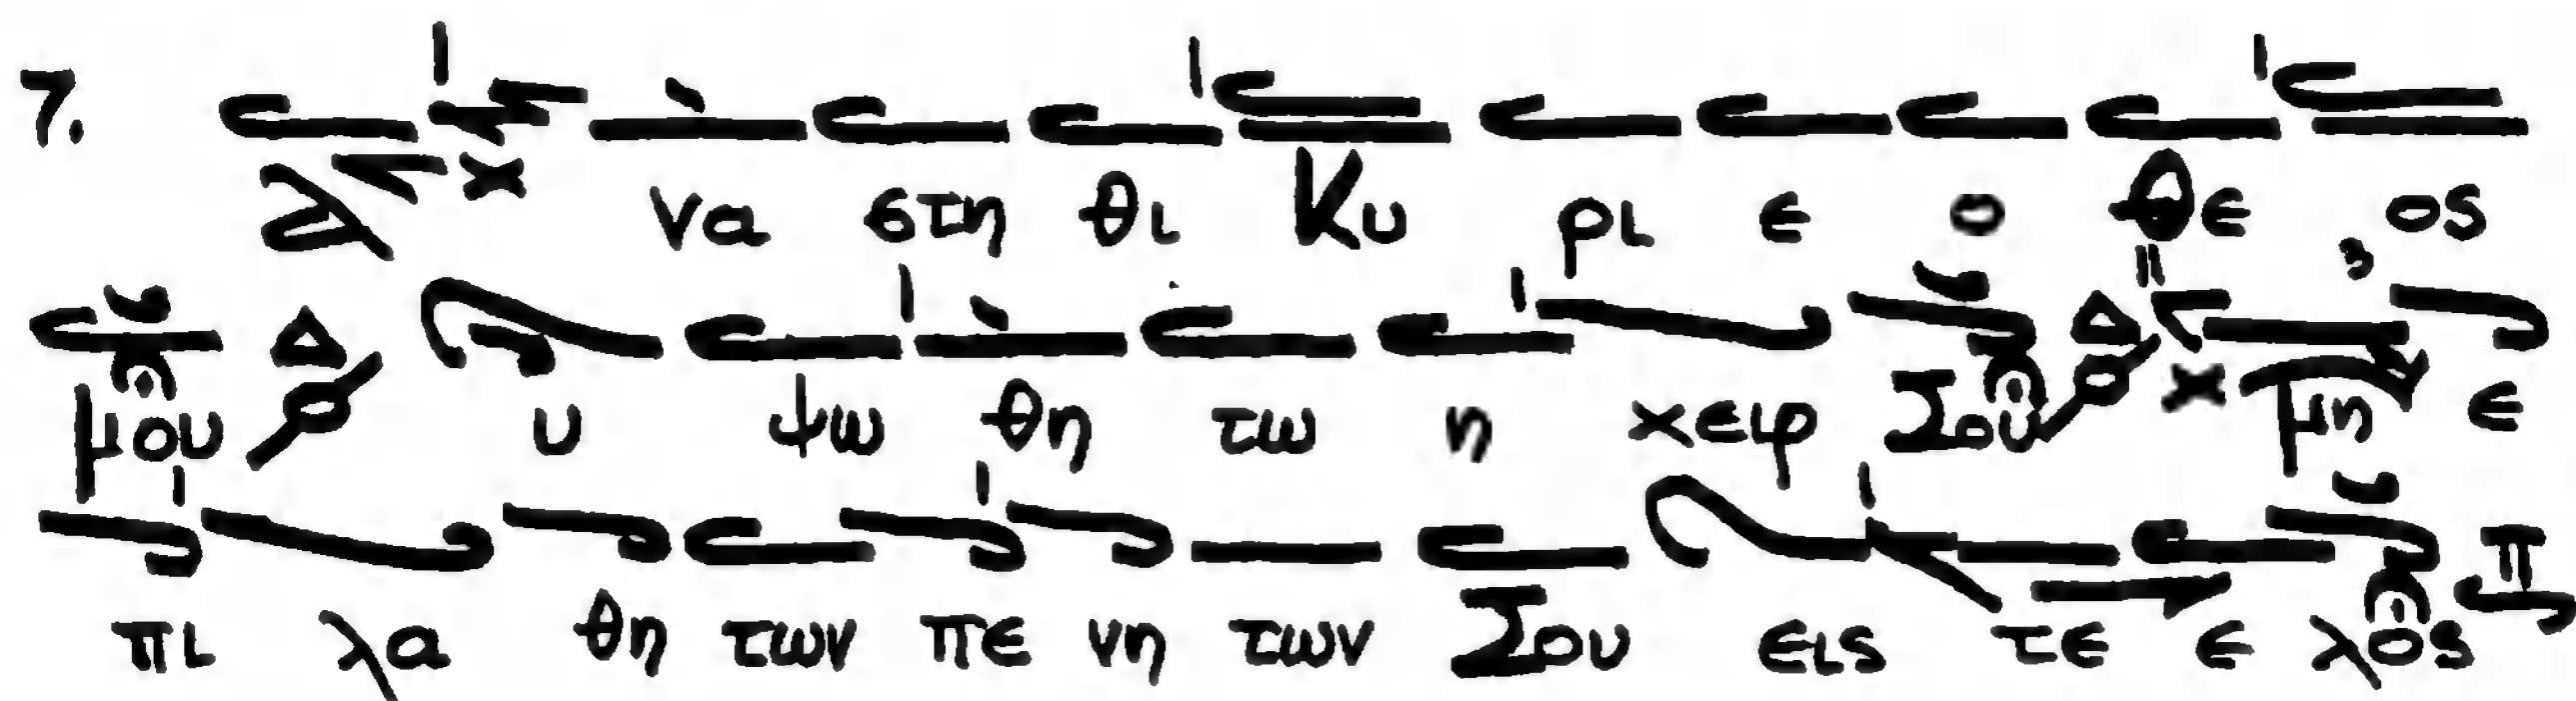 7. Α να στη θι Κυ ρι ε ο Θε ος
μου Δ υ ψω θη τω η χειρ Σου Δ μη ε
πι λα θη των πε νη των Σου εις τε ε λος π